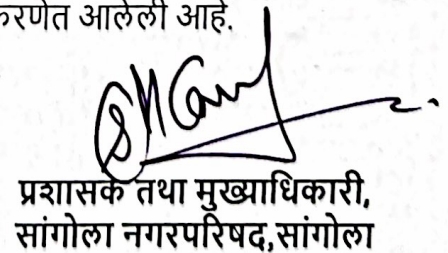 करणेत आलेली आहे.
प्रशासक तथा मुख्याधिकारी,
सांगोला नगरपरिषद,सांगोला